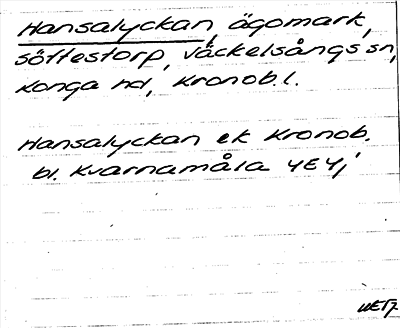 Hansalyckan, ägomark,
Söftestorp, Väckelsångs sn,
Konga hd, Kronob. l.
Hansalyckan ek Kronob.
bl. Kvarnamåla 4E4j